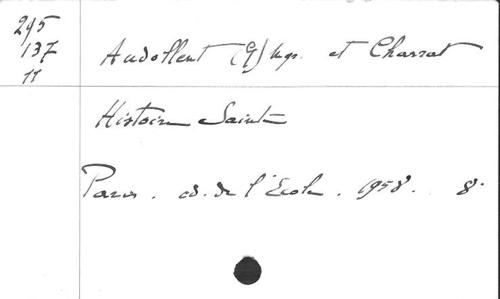 245
137
11
Audollent (G) Mgr. et Charrat
Histoire Sainte
Paris. éd. de l'Ecole. 1958. 8°